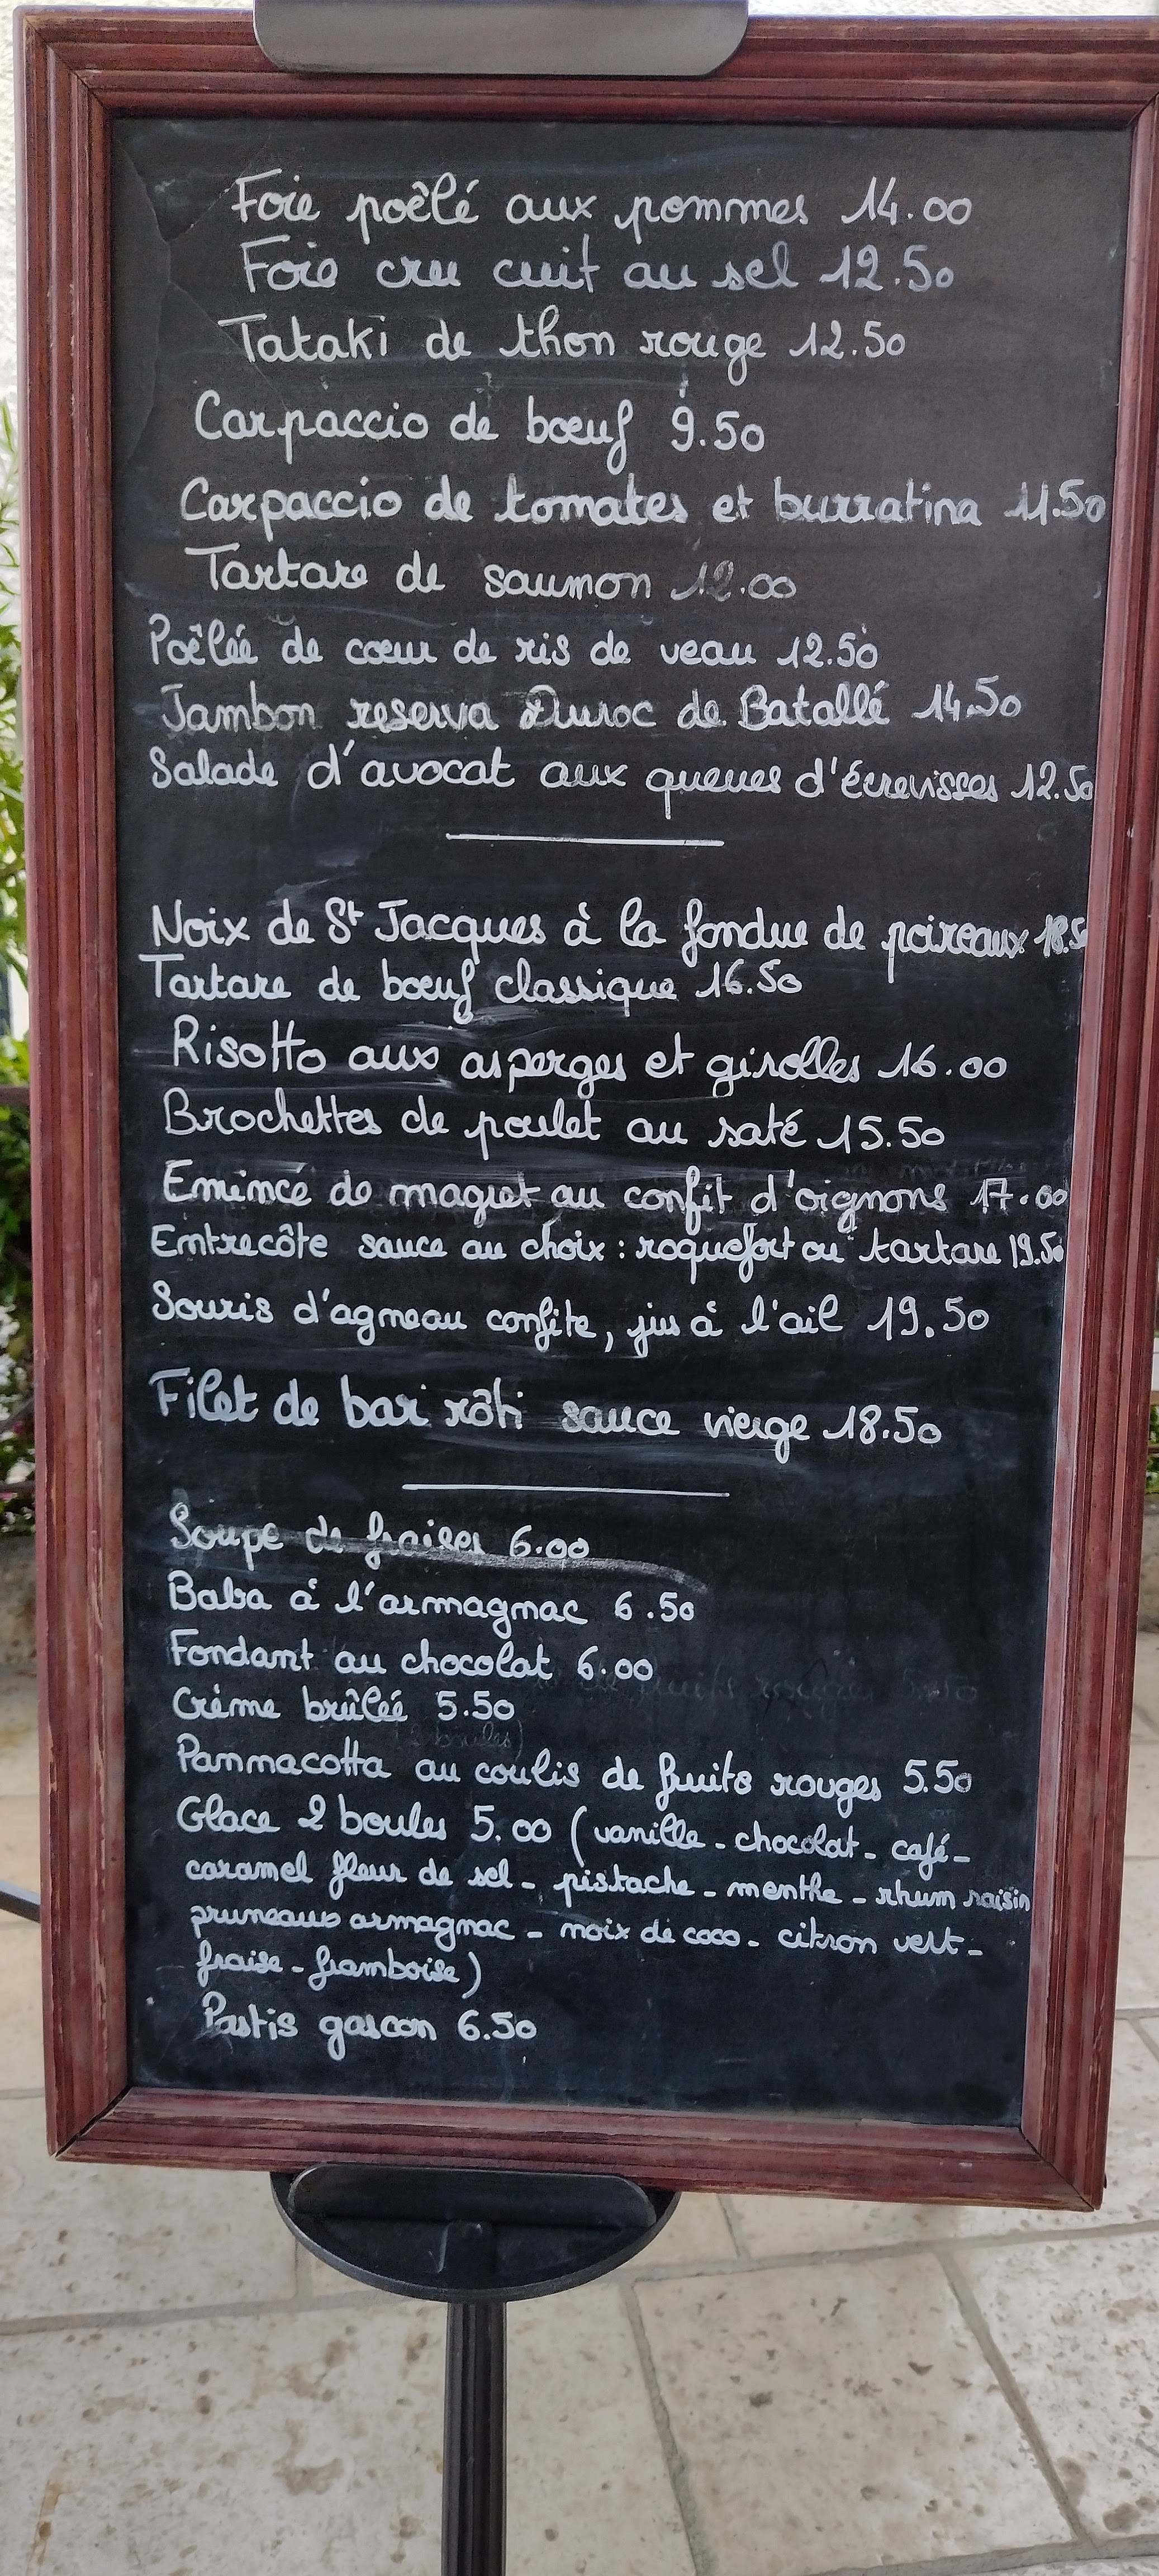 Foie poêlé aux pommes 14.00
Foie cru cuit au sel 12.50
Tataki de thon rouge 12.50
Carpaccio de bœuf 9.50
Carpaccio de tomates et burratina 11.50
Tartare de saumon 12.00
Poêlée de cœur de ris de veau 12.50
Jambon reserva Duroc de Batallé 14.50
Salade d'avocat aux queues d'écrevisses 12.50
Noix de St Jacques à la fondue de poireaux 18.50
Tartare de bœuf classique 16.50
Risotto aux asperges et girolles 16.00
Brochettes de poulet au saté 15.50
Emincé de magret au confit d'oignons 17.00
Entrecôte sauce au choix : roquefort ou tartare 19.50
Souris d'agneau confite, jus à l'ail 19.50
Filet de bar rôti sauce vierge 18.50
Soupe de fraises 6.00
Baba à l'armagnac 6.50
Fondant au chocolat 6.00
Crème brûlée 5.50
Pannacotta au coulis de fruits rouges 5.50
Glace 2 boules 5.00 (vanille - chocolat - café -
caramel fleur de sel - pistache - menthe - rhum raisin
pruneaux armagnac - noix de coco - citron vert -
fraise - framboise)
Pastis gascon 6.50